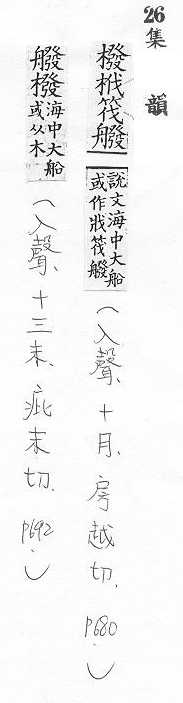 26集韻
橃㭮筏艬說文海中大船或作㭮筏艬(入聲、十月、房越切、P680.)
艬橃海中大船或从木(入聲、十三末、疪末切、P692.)